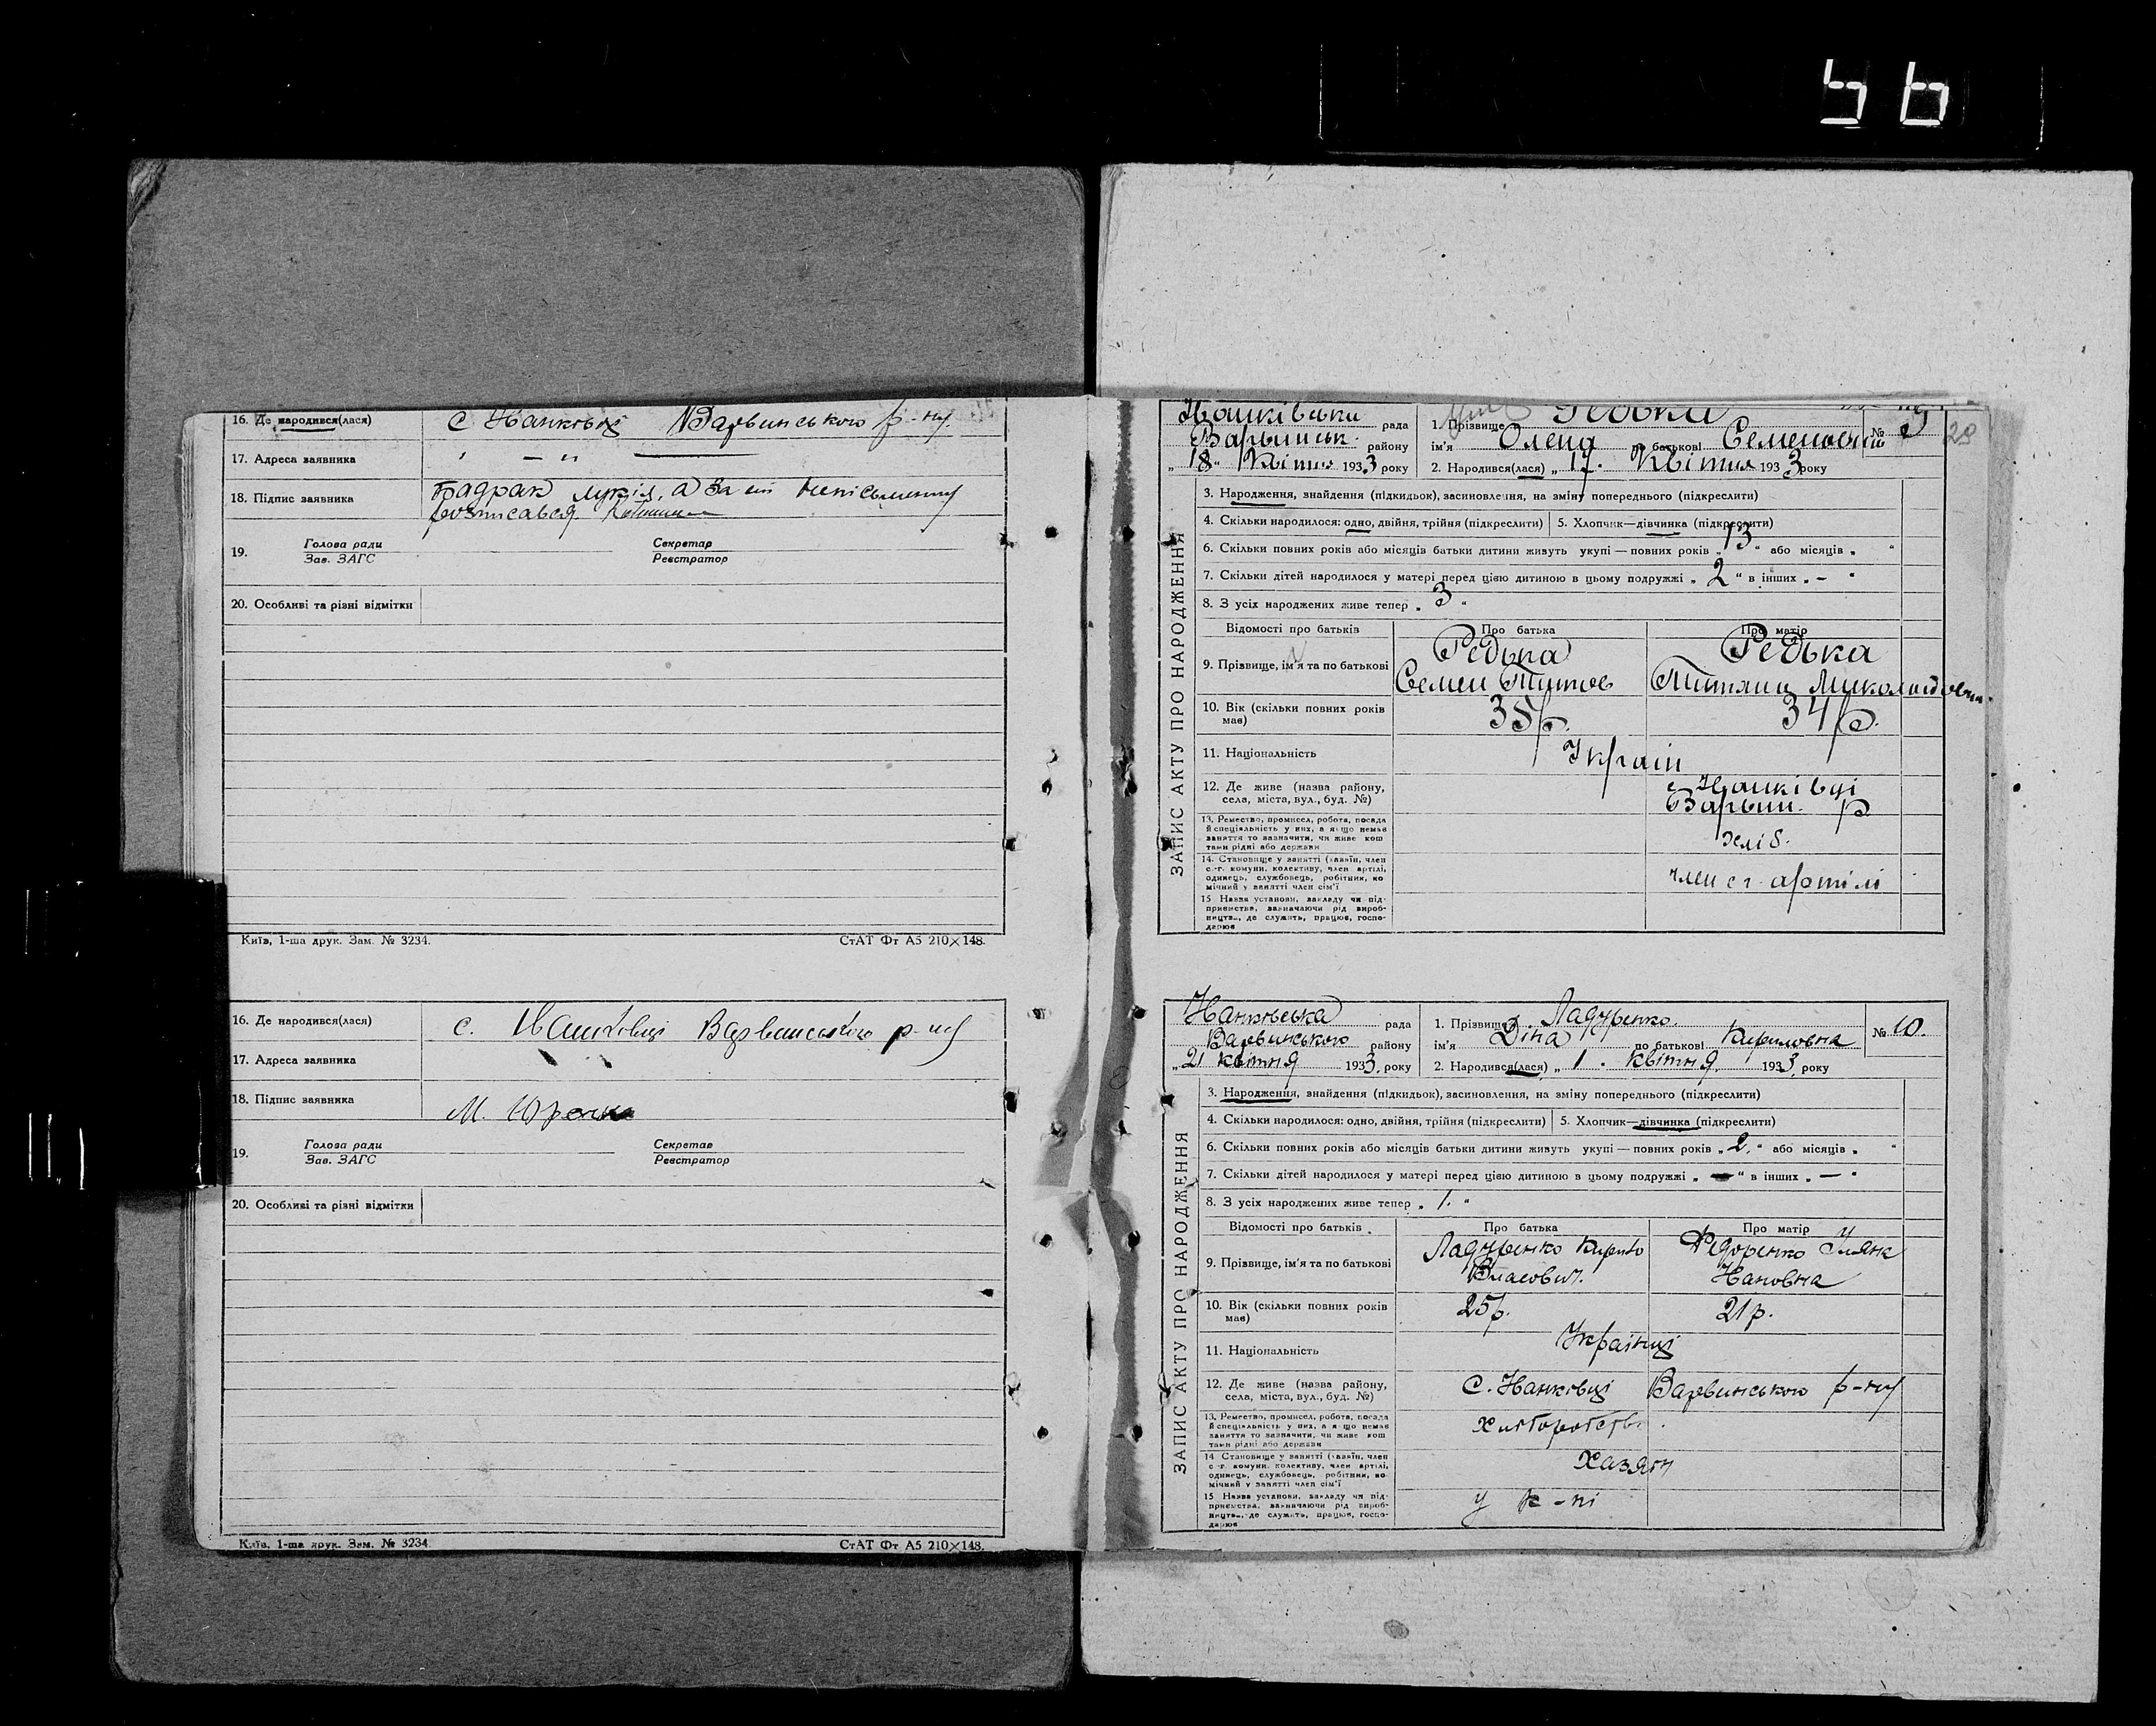 56
16. Де народився(лася) с Іванківці Варвинського р-ну.
17. Адреса заявника
18. Підпис заявника а за неї неписьменну
розписався.
19. Голова ради Секретар
Зав. ЗАГС Реєстратор
20. Особливі та різні відмітки
Київ, 1-ша друк. Зам. № 3234. СтАТ Фт А5 210×148.
16. Де народився(лася) с. Іванківці Варвинського р-ну
17. Адреса заявника
18. Підпис заявника
М.
19. Голова ради Секретар
Зав. ЗАГС Реєстратор
20. Особливі та різні відмітки
Київ, 1-ша друк. Зам. № 3234. СтАТ Фт А5 210×148.
Іванківська рада 1. Прізвище Редька № 9 29
Варвинськ. району ім'я Олена по батькові Семеновна
„18" Квітня 1933 року 2. Народився(лася) „17. Квітня 1933 року
ЗАПИС АКТУ ПРО НАРОДЖЕННЯ
3. Народження, знайдення (підкидьок), засиновлення, на зміну попереднього (підкреслити)
4. Скільки народилося: одно, двійня, трійня (підкреслити) 5. Хлопчик—дівчинка (підкреслити)
6. Скільки повних років або місяців батьки дитини живуть укупі — повних років „13" або місяців „ "
7. Скільки дітей народилося у матері перед цією дитиною в цьому подружжі „2" в інших „—"
8. З усіх народжених живе тепер „3"
Відомості про батьків Про батька Про матір
9. Прізвище, ім'я та по батькові Редька Редька
Семен Титов
10. Вік (скільки повних років має) 35р. 34р.
11. Національність Україн
12. Де живе (назва району, Іванківці
села, міста, вул., буд. №) Варвин. р
13. Ремество, промисел, робота, посада
й спеціяльність у них, а якщо немає
заняття то зазначити, чи живе кош
тами рідні або держави хліб.
14. Становище у занятті (хазяїн, член
с.-г. комуни, колективу, член артілі,
одинець, службовець, робітник, по
мічний у занятті член сім'ї член с г артілі
15. Назва установи, закладу чи під-
приємства, зазначаючи рід вироб-
ництва, де служить, працює, госпо-
дарює
Іванківська рада 1. Прізвище Ладуренко. № 10.
Варвинського району ім'я Діна по батькові Кириловна
„21 квітня 1933. року 2. Народився(лася) „1. квітня. 1933. року
ЗАПИС АКТУ ПРО НАРОДЖЕННЯ
3. Народження, знайдення (підкидьок), засиновлення, на зміну попереднього (підкреслити)
4. Скільки народилося: одно, двійня, трійня (підкреслити) 5. Хлопчик—дівчинка (підкреслити)
6. Скільки повних років або місяців батьки дитини живуть укупі — повних років „2." або місяців „ "
7. Скільки дітей народилося у матері перед цією дитиною в цьому подружжі „—" в інших „—"
8. З усіх народжених живе тепер „1."
Відомості про батьків Про батька Про матір
Ладуренко Кирило Федоренко Уляна
9. Прізвище, ім'я та по батькові
Власович. Івановна
10. Вік (скільки повних років має) 25р. 21р.
11. Національність Українці
12. Де живе (назва району, с. Іванківці Варвинського р-ну
села, міста, вул., буд. №)
13. Ремество, промисел, робота, посада
й спеціяльність у них, а якщо немає
заняття то зазначити, чи живе кош
тами рідні або держави
14. Становище у занятті (хазяїн, член
с.-г. комуни, колективу, член артілі,
одинець, службовець, робітник, по-
мічний у занятті член сім'ї Хазяїн
15. Назва установи, закладу чи під-
приємства, зазначаючи рід вироб-
ництва, де служить, працює, госпо-
дарює